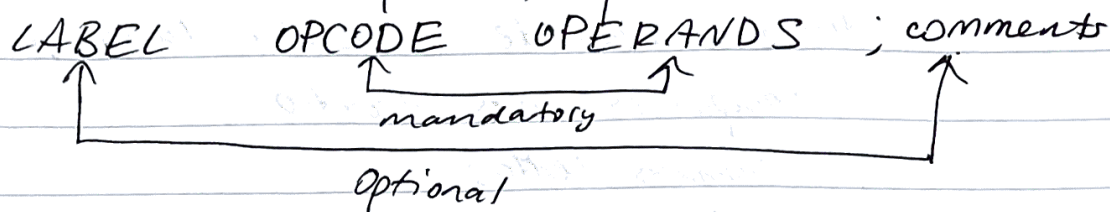 LABEL OPCODE OPERANDS ; comments
mandatory
Optional